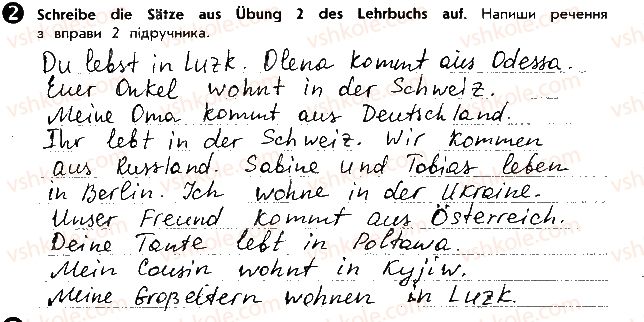 2 Schreibe die Sätze aus Übung 2 des Lehrbuchs auf. Напиши речення
з вправи 2 підручника.
Du lebst in Luzk. Olena kommt aus Odessa.
Euer Onkel wohnt in der Schweiz.
Meine Oma kommt aus Deutschland.
Ihr lebt in der Schweiz. Wir kommen
aus Russland. Sabine und Tobias leben
in Berlin. Ich wohne in der Ukraine.
Unser Freund kommt aus Österreich.
Deine Tante lebt in Poltawa.
Mein Cousin wohnt in Kyjiw.
Meine Großeltern wohnen in Luzk.